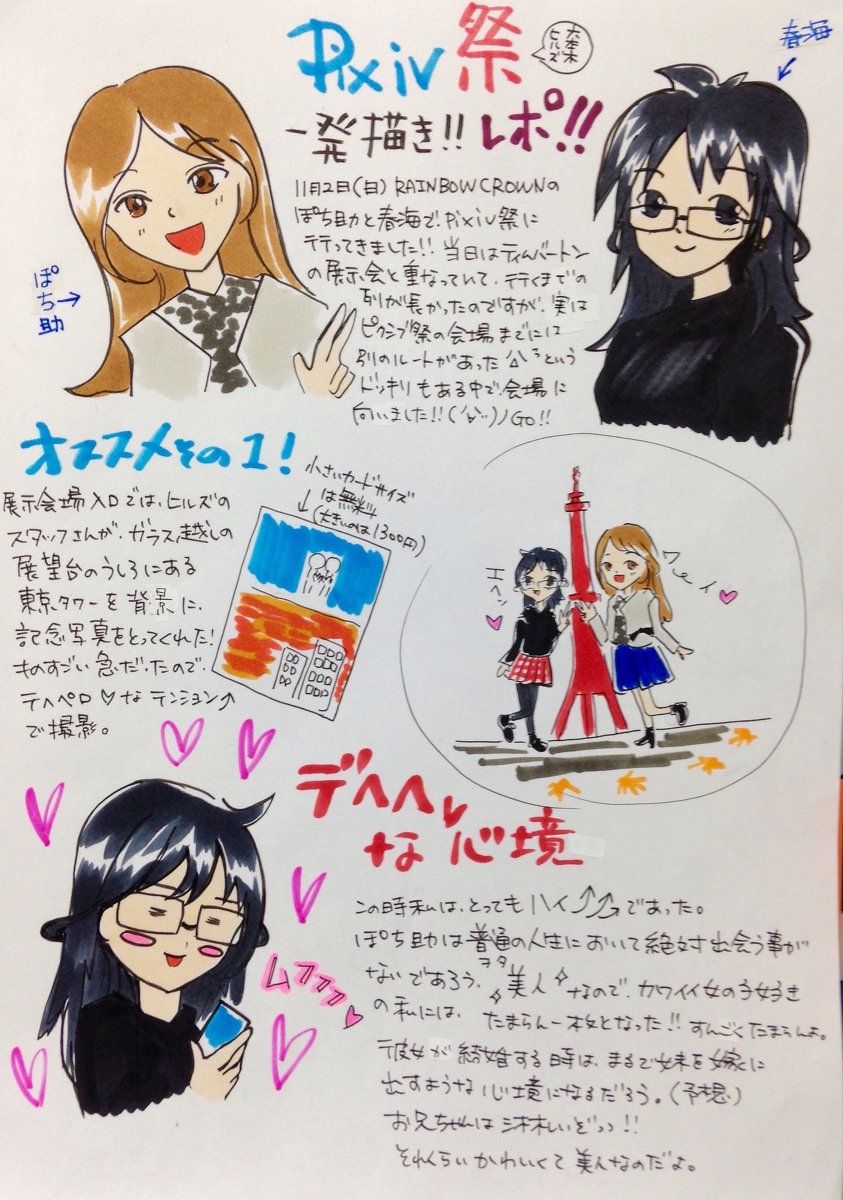 Pixiv祭
六本木
ヒルズ
春海
一発描き!! レポ!!
11月2日(日) RAINBOWCROWNの
ぽち助と春海で、Pixiv祭に
行ってきました!! 当日はティムバートン
の展示会と重なっていて、行くまでの
列が長かったのですが、実は
ピクシブ祭の会場までには
別のルートがあったという
ドッキリもある中で、会場に
向いました!! GO!!
ぽち助
オススメその1!
展示会場入口では、ヒルズの
スタッフさんが、ガラス越しの
展望台のうしろにある
東京タワーを背景に、
記念写真をとってくれた!
ものすごい急だったので、
テヘペロ♡なテンション↑
で撮影。
小さいカードサイズ
は無料
(大きいのは1300円)
エヘッ
わーい
デヘヘ
な心境
この時私は、とってもハイ⤴⤴であった。
ぽち助は普通の人生において絶対出会う事が
ないであろう、
ヲタ
美人なので、カワイイ女の子好き
の私には、たまらん一枚となった!! すんごくたまらんよ。
彼女が結婚する時は、まるで妹を嫁に
出すような心境になるだろう。(予想)
お兄ちゃんは淋しいぞっっ!!
それくらいかわいくて美人なのだよ。
ムフフフ